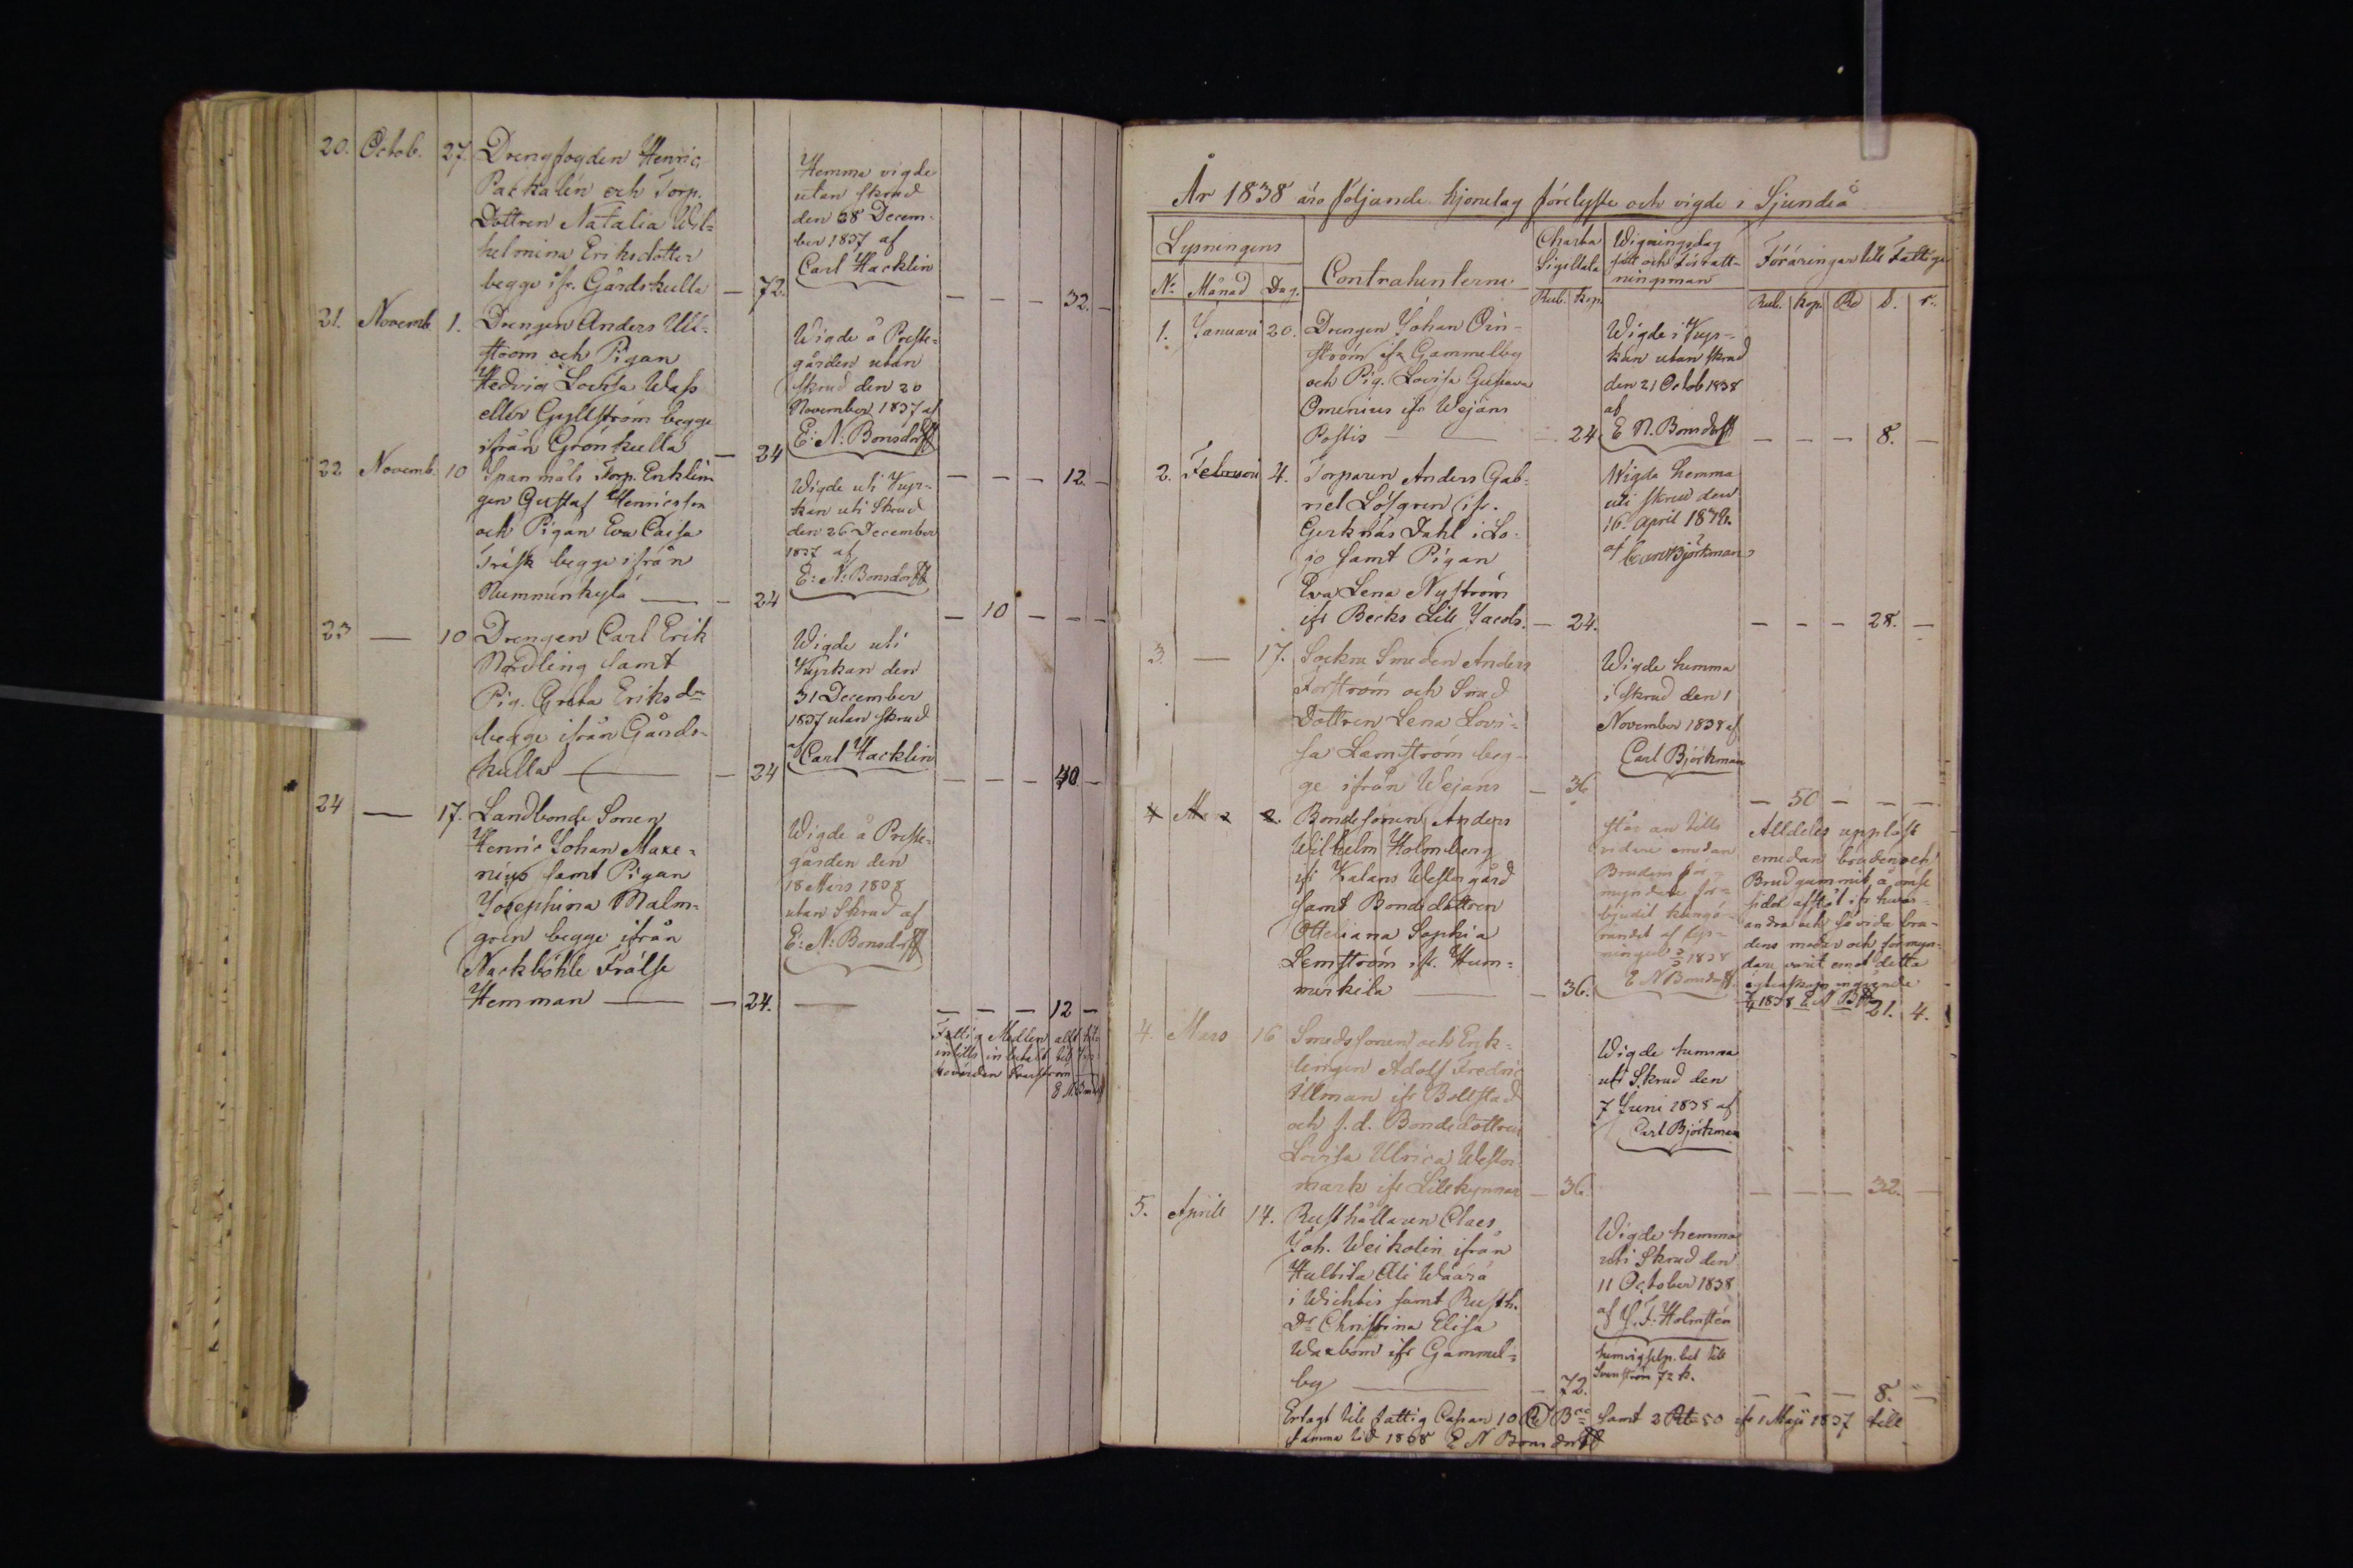 20. Octob. 27. Drengfogden Henric
Packalén och Torp.
Dottren Natalia Wil-
helmina Eriksdotter
begge ifr. Gårdskulla — 72.
Hemma vigde
utan skrud
den 28 Decem-
ber 1837 af
Carl Hacklin
— — — 32. —
21. Novemb. 1. Drengen Anders Ull-
ström och Pigan
Hedvig Lovisa Wass
eller Gyllström begge
ifrån Grönkulla — 24
Wigde å Preste-
gården utan
skrud den 20
November 1837 af
E: N: Bonsdorff
— — — 12. —
22 Novemb. 10 Spanmåls Torp. Enklin-
gen Gustaf Henricsson
och Pigan Eva Caisa
Träsk begge ifrån
Nummenkylä — — 24
Wigde uti Kyr-
kan uti Skrud
den 26 December
1837 af
E: N: Bonsdorff
— 10 — — —
23 — 10 Drengen Carl Erik
Nordling samt
Pig. Greta Eriksdr
begge ifrån Gårds-
kulla — — 24
Wigde uti
Kyrkan den
31 December
1837 utan skrud
af Carl Hacklin
— — — 40 —
24 — 17. Landbonde Sonen
Henric Johan Maxe-
nius samt Pigan
Josephina Malm-
gren begge ifrån
Nackböhle Frälse
Hemman — — 24. —
Wigde å Preste-
gården den
18 Mars 1838
utan Skrud af
E: N: Bonsdorff
— — — 12 —
Fattig Medlen allt hit-
intills inbetalt till
E N Bonsdorff
År 1838 äro följande hjonelag förelyste och vigde i Sjundeå
Lysningens
No. Månad Dag.
Contrahenterne
Charta
Sigillata
Rub. Kop.
Wigningsdag
sätt och Förrätt-
ningsman
Föräringar till Fattiga
Rub. Kop. Rd S. r.
1. Januari 20. Drengen Johan Örn-
ström ifr Gammelby
och Pig. Lovisa Gustava
Omenius ifr Wejans
Postis — — 24
Wigde i Kyr-
kan utan skrud
den 21 Octob 1838
af
E N. Bonsdorff
— — — 8. —
2. Februari 4. Torparen Anders Gab-
riel Löfgren ifr.
Gerknäs Dahl i Lo-
jo samt Pigan
Eva Lena Nyström
ifr Becks Lill Jacobs. — 24.
Wigda hemma
uti skrud den
16. April 1838.
af Carl Björkman
— — — 28. —
3. — 17. Sockne Smeden Anders
Forström och Smed
Dottren Lena Lovi-
sa Lemström beg-
ge ifrån Wejans — 36
Wigde hemma
i skrud den 1
November 1838 af
Carl Björkman
— 50 — — —
Bondesonen Anders
Wilhelm Holmberg
ifr Kalans Westergård
samt Bondedottren
Otteliana Sophia
Lemström ifr. Hum-
merkila — — 36.
står an tills
vidare emedan
Brudens för-
myndare för-
bjudit kungö-
randet af lys-
ningen 1838
E N Bonsdorff
Alldeles upplöst
emedan bruden och
Brudgummen å ömse
sidor afstått ifr hvar-
andra och så vida bru-
dens moder och förmyn-
dare varit emot detta
ägtenskaps ingående
1838 E N Bff 21. 4.
4. Mars 16 Smedssonen och Enk-
lingen Adolf Fredric
Ullman ifr Bollstad
och f.d. Bondedottren
Lovisa Ulrica Wester-
mark ifr Lillkynnar — 36.
Wigde hemma
uti Skrud den
7 Juni 1838 af
Carl Björkman
— — — 32. —
5. Aprill 14. Rusthållaren Claes
Joh. Weikolin ifrån
Hulttila Ali Wäärä
i Wichtis samt Rusth.
Dr Christina Elisa
Waxbom ifr Gammel-
by — — 72.
Wigde hemma
uti Skrud den
11 October 1838
af J. F. Holmstén
hemvigselp. bet till
72 k.
— — — 8. —
Erlagt till fattig Cassan 10 Rd Bco samt 2 50 ifr 1 Maji 1837 till
samma tid 1838 E N Bonsdorff